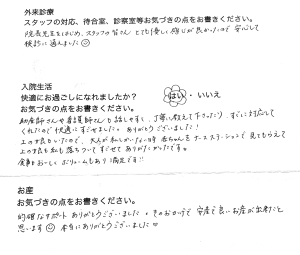 外来診療
スタッフの対応、待合室、診察室等お気づきの点をお書きください。
院長先生をはじめ、スタッフの皆さんとても優しく感じが良かったので安心して
検診に通えました☺
入院生活
快適にお過ごしになれましたか？ はい・いいえ
お気づきの点をお書きください。
助産師さんや看護師さんも話しやすく、丁寧に教えて下さったり、すぐに対応して
くれたので快適にすごせました。ありがとうございました！
上の子もいたので、大人が私しかいない時赤ちゃんをナースステーションで見てもらえて
上の子も私も落ちついてすごせてありがたかったです。
食事もおいしくボリュームもあり満足です!!
お産
お気づきの点をお書きください。
的確なサポートありがとうございました。そのおかげで安産で良いお産が出来たと
思います☺ 本当にありがとうございました♡